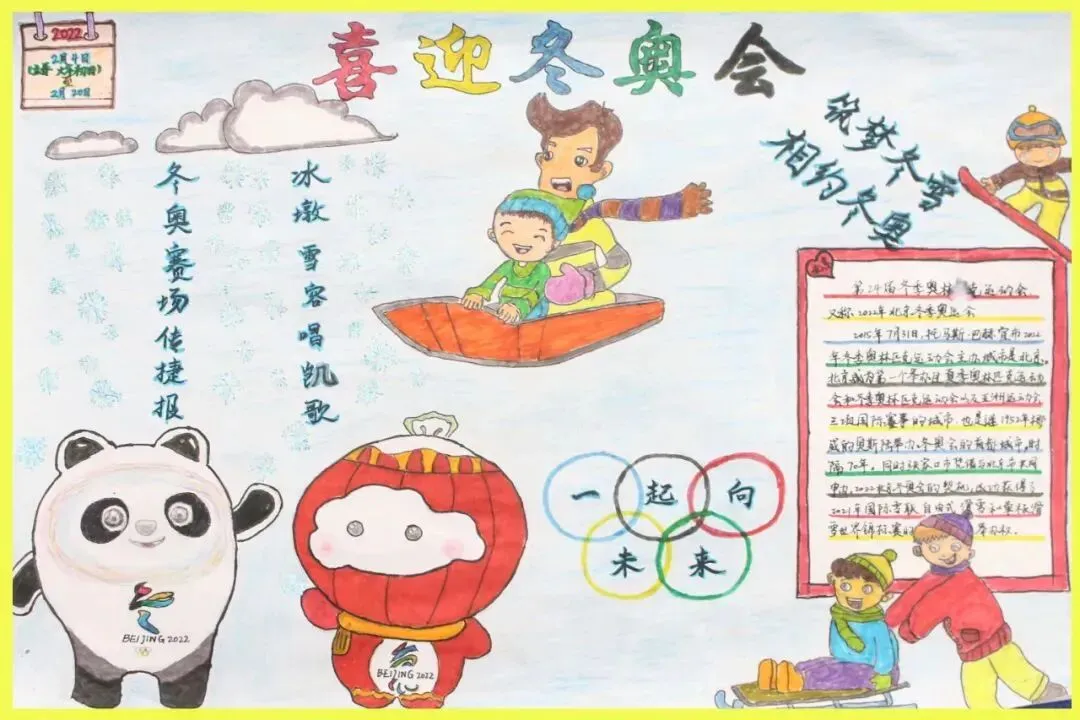 2022
2月4日
(立春 大年初四)
至
2月20日
喜迎冬奥会
筑梦冬雪
相约冬奥
冰墩雪容唱凯歌
冬奥赛场传捷报
第24届冬季奥林 克运动会,
又称2022年北京冬季奥运会
2015年7月31日,托马斯·巴赫宣布2022
年冬季奥林匹克运动会主办城市是北京,
北京成为第一个举办过夏季奥林匹克运动
会和冬季奥林匹克运动会以及亚洲运动会
三项国际赛事的城市.也是继1952年挪
威的奥斯陆举办冬奥会的首都城市,时
隔70年。同时张家口市凭借与北京市共同
申办,2022北京冬奥会的契机,成功获得了
2021年国际雪联自由式滑雪和单板滑
雪世界锦标赛 举办权.
一起向
未来
BEIJING 2022
BEIJING 2022